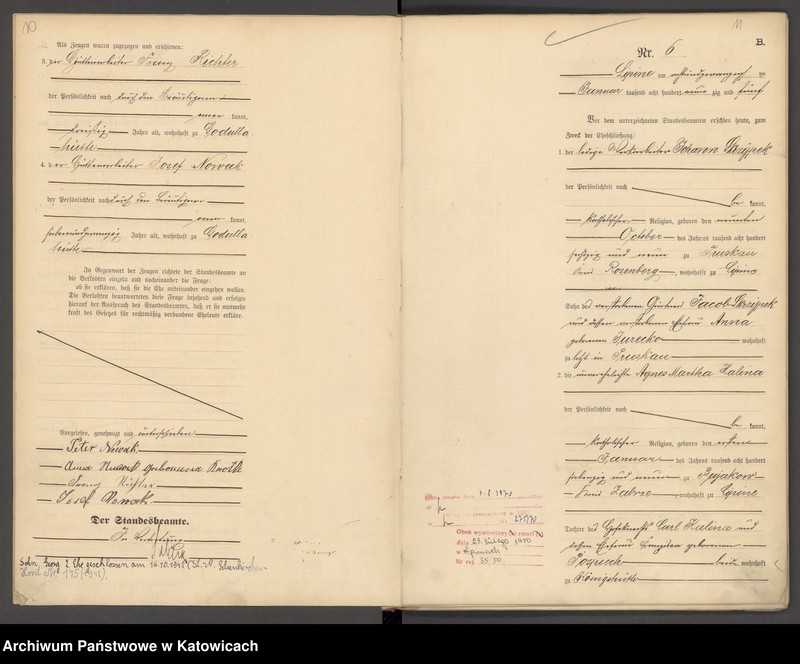 10
Als Zeugen waren zugezogen und erschienen:
3. der Hüttenarbeiter Franz Richter
der Persönlichkeit nach durch den Bräutigam
kannt,
dreißig Jahre alt, wohnhaft zu Godulla
hütte
4. der Hüttenarbeiter Josef Nowak
der Persönlichkeit nach durch den Bräutigam
kannt,
siebenundzwanzig Jahre alt, wohnhaft zu Godulla
hütte
In Gegenwart der Zeugen richtete der Standesbeamte an
die Verlobten einzeln und nacheinander die Frage:
ob sie erklären, daß sie die Ehe miteinander eingehen wollen.
Die Verlobten beantworteten diese Frage bejahend und erfolgte
hierauf der Ausspruch des Standesbeamten, daß er sie nunmehr
kraft des Gesetzes für rechtmäßig verbundene Eheleute erkläre.
Vorgelesen, genehmigt und unterschrieben
Peter Nowak
Anna Nowak geborene
Franz Richter
Josef Nowak
Der Standesbeamte.
In Vertretung
Sohn Georg 2. Ehe geschlossen am 16.10.1942
145/1942).
11
B.
Nr. 6
Lipine am
Januar tausend acht hundert neun zig und fünf
Vor dem unterzeichneten Standesbeamten erschien heute, zum
Zweck der Eheschließung:
1. der ledige Werkarbeiter Johann Skrzypek
der Persönlichkeit nach
be kannt,
katholischer Religion, geboren den neunten
October des Jahres tausend acht hundert
sechzig und neun zu Pruskau
Kreis Rosenberg, wohnhaft zu Lipine
Sohn des verstorbenen Jacob Skrzypek
und dessen verstorbenen Ehefrau Anna
geborenen Jurecko wohnhaft
zu letzt in Pruskau
2. die unverehelichte Agnes Martha Kalina
der Persönlichkeit nach
be kannt,
katholischer Religion, geboren den ersten
Januar des Jahres tausend acht hundert
siebenzig und neun zu Bujakow
Kreis Zabrze, wohnhaft zu Lipine
Tochter des Carl Kalina und
dessen Ehefrau geborenen
Pospiech beide wohnhaft
zu Königshütte
1.8.1970
271/70
Obok wymieniony (a) zmarł (a)
dnia 23. lutego 1950
w Lipinach
Nr rej. 35/50
Archiwum Państwowe w Katowicach